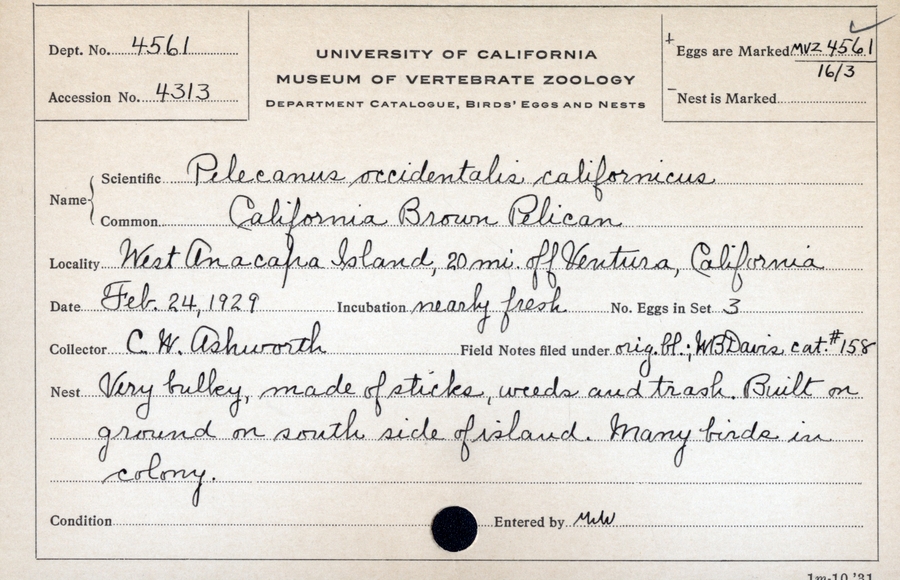 Dept. No. 4561
Accession No. 4313
UNIVERSITY OF CALIFORNIA
MUSEUM OF VERTEBRATE ZOOLOGY
DEPARTMENT CATALOGUE, BIRDS' EGGS AND NESTS
+ Eggs are Marked MVZ 4561
16/3
– Nest is Marked
Name
Scientific Pelecanus occidentalis californicus
Common California Brown Pelican
Locality West Anacapa Island, 20 mi. off Ventura, California
Date Feb. 24, 1929 Incubation nearly fresh No. Eggs in Set 3
Collector C. W. Ashworth Field Notes filed under orig. bl.; WBDavis cat. #158
Nest Very bulky, made of sticks, weeds and trash. Built on
ground on south side of island. Many birds in
colony.
Condition Entered by
1m-10,'31